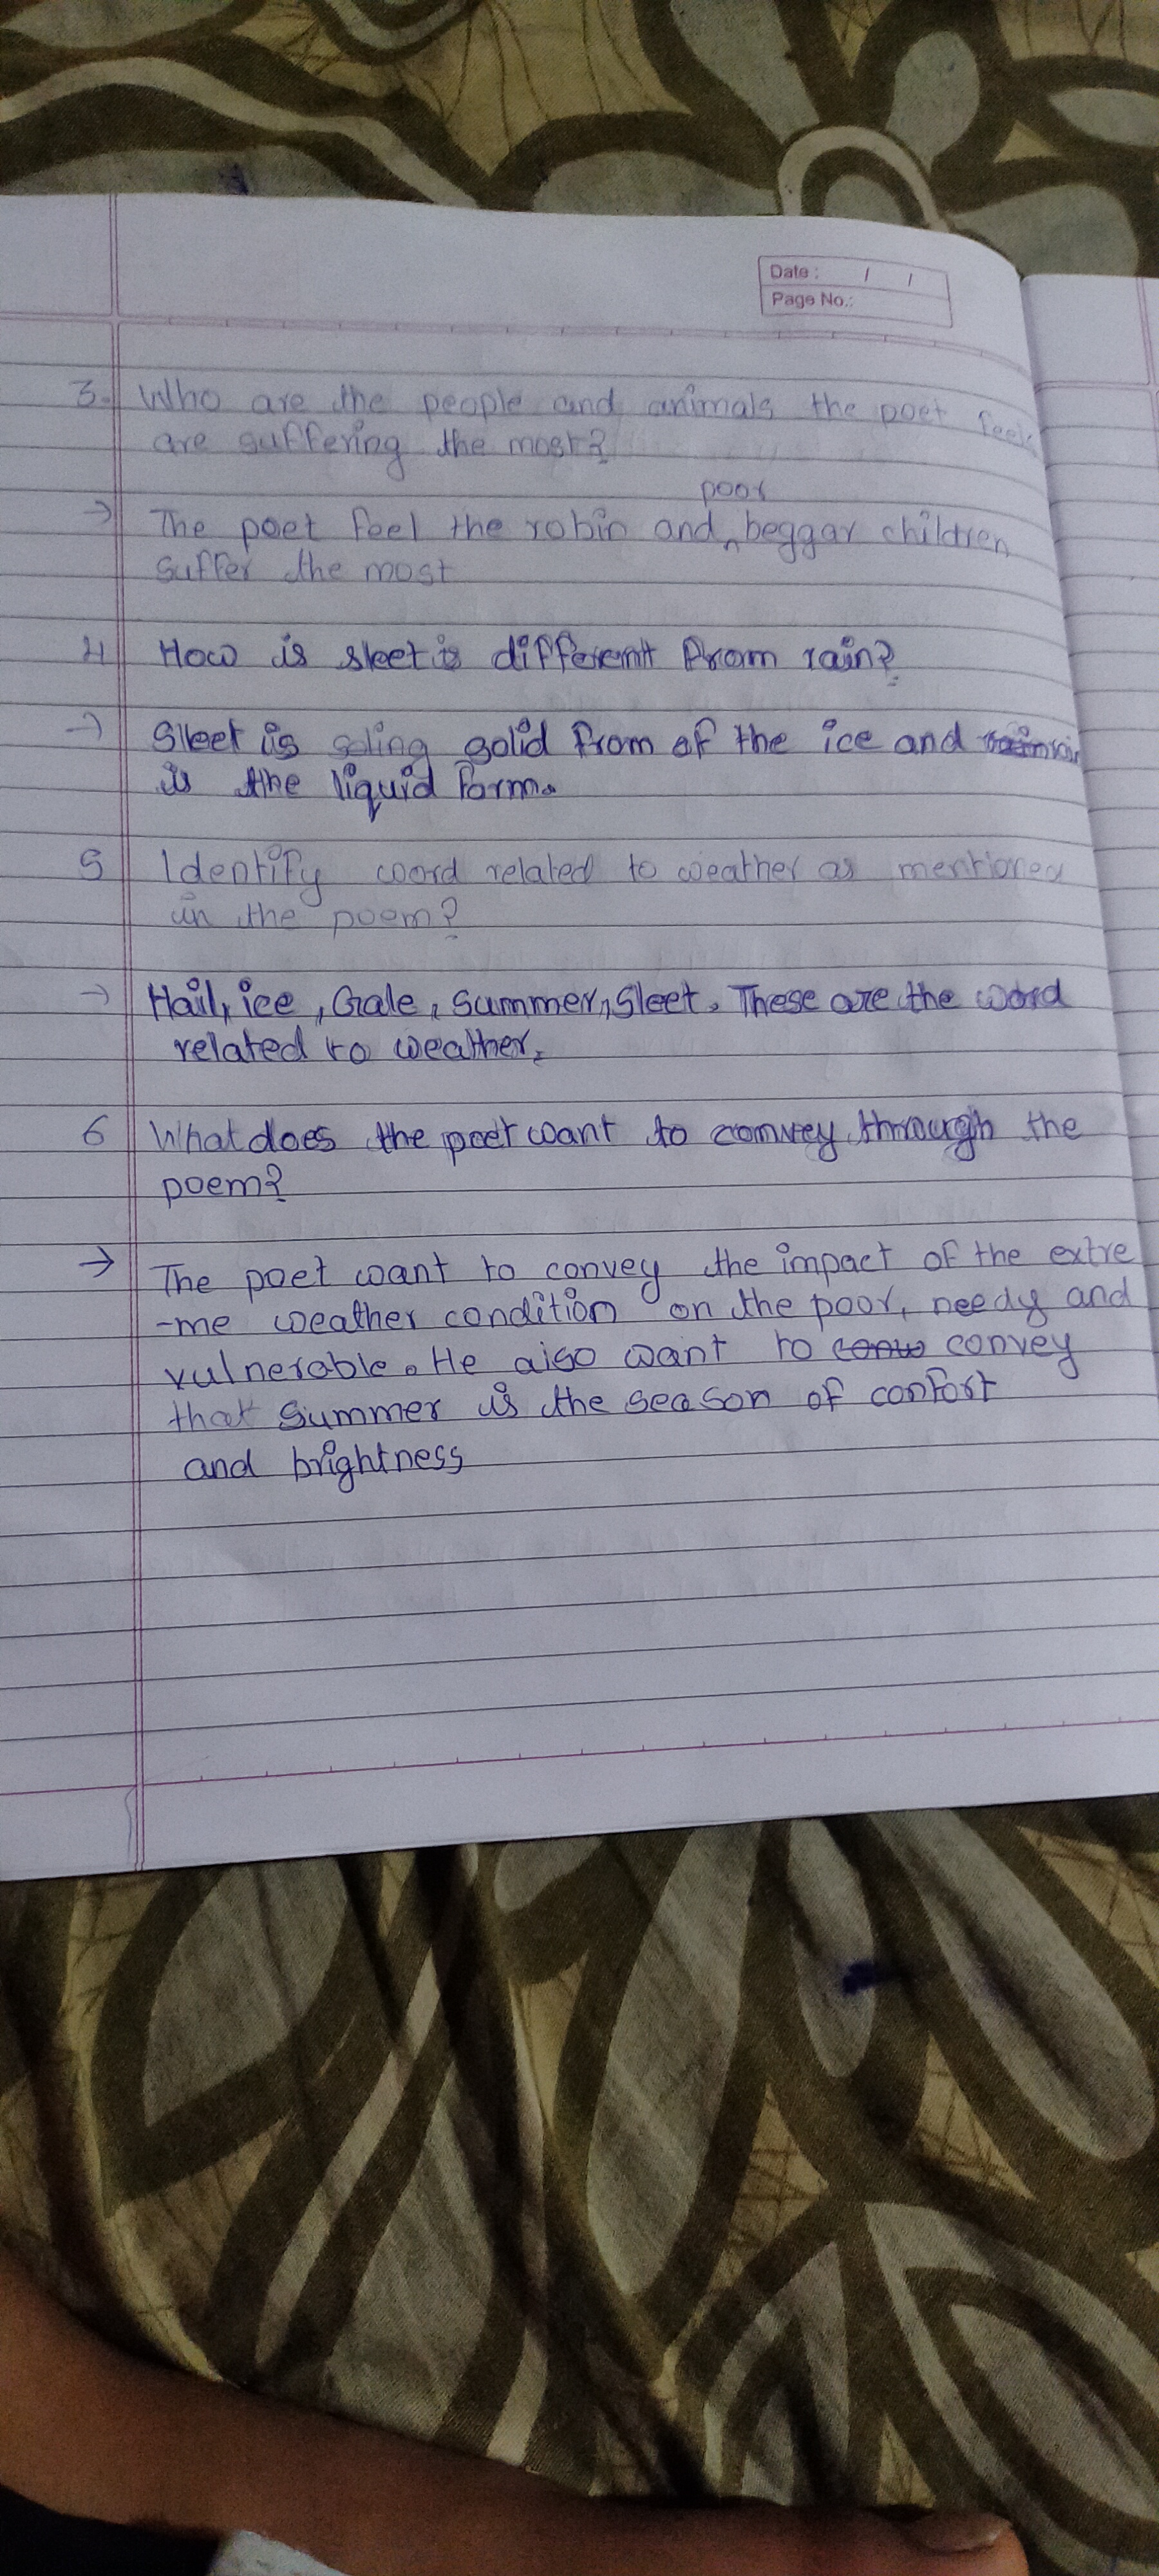 Date : / /
Page No.:
3. Who are the people and animals the poet feels
are suffering the most?
poor
→ The poet feel the robin and beggar children
suffer the most
4 How is sleet is different from rain?
→ Sleet is soling solid from of the ice and
is the liquid form.
5 Identify word related to weather as mentioned
in the poem?
→ Hail, ice, Gale, Summer, Sleet. These are the word
related to weather.
6 What does the poet want to convey through the
poem?
→ The poet want to convey the impact of the extre
-me weather condition on the poor, needy and
vulnerable. He also want to conv convey
that Summer is the season of confort
and brightness